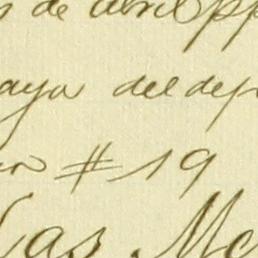 de abril pp
aya del dep
# 19
las Me